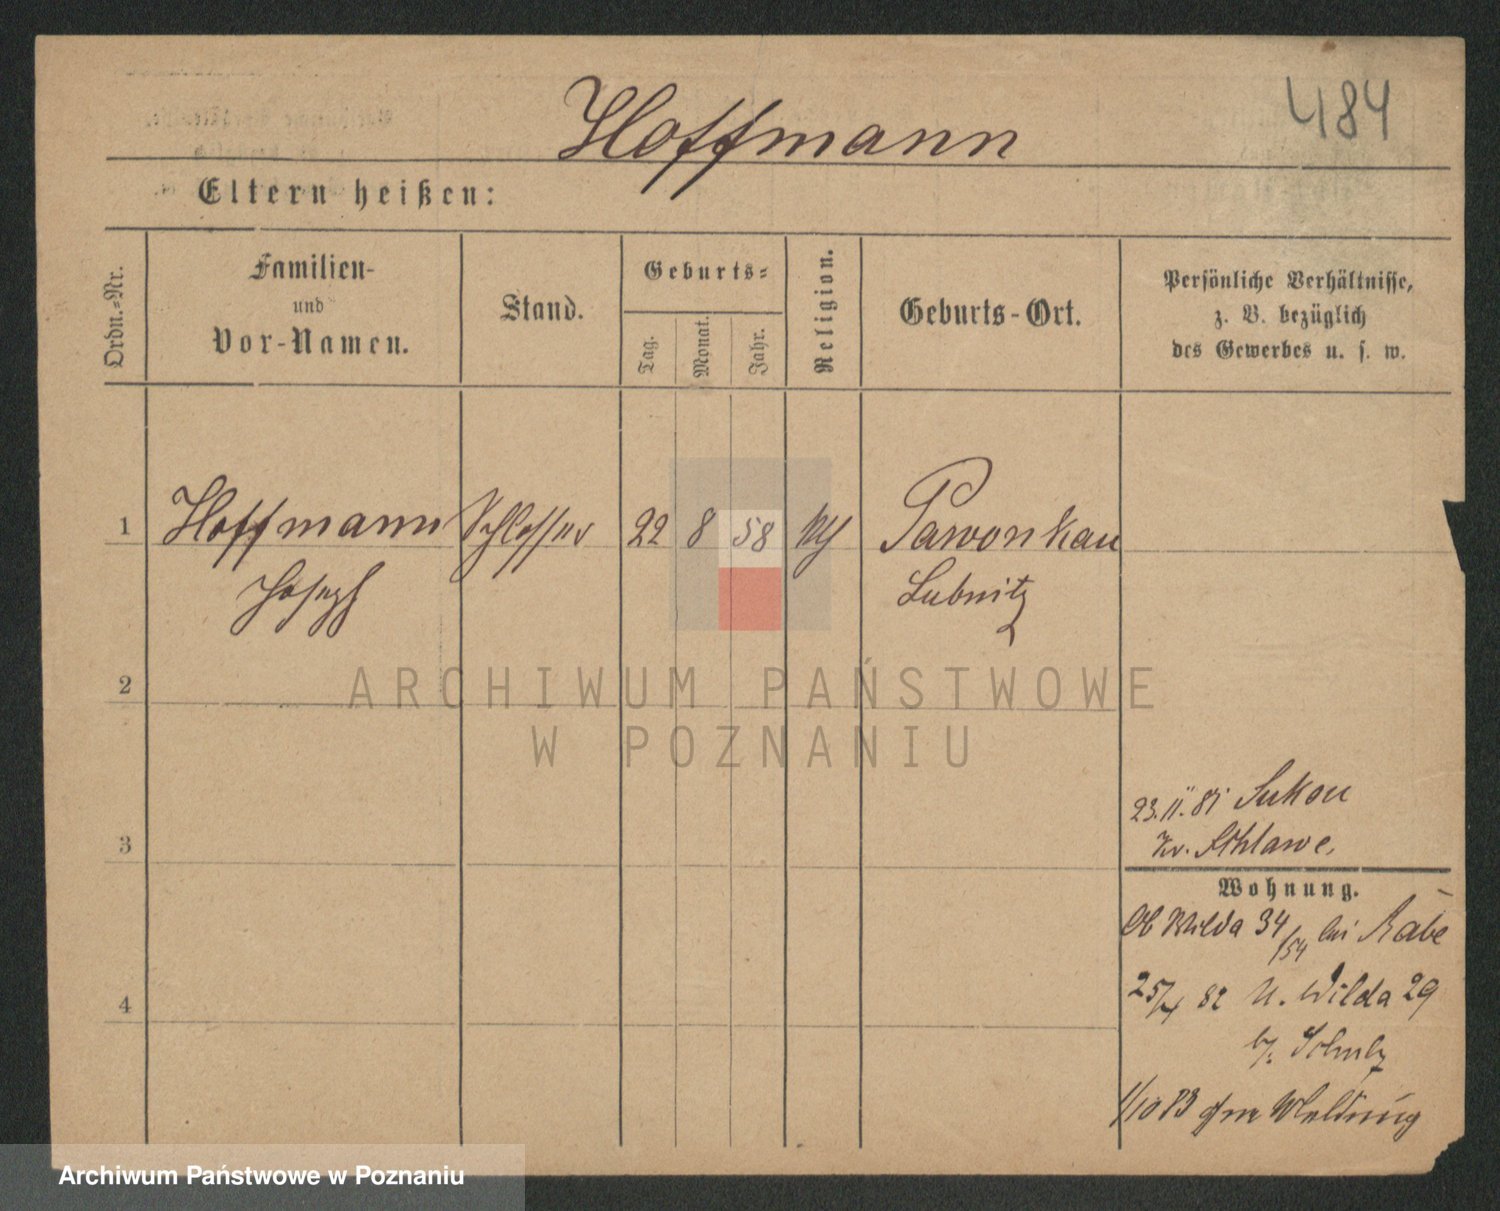 Hoffmann
484
Eltern heißen:
Ordn.-Nr.
Familien-
und
Vor-Namen.
Stand.
Geburts-
Tag.
Monat.
Jahr.
Religion.
Geburts-Ort.
Persönliche Verhältnisse,
z. B. bezüglich
des Gewerbes u. s. w.
1 Hoffmann Schlosser 22 8 58 Pawonkau
Joseph Lubnitz
2
ARCHIWUM PAŃSTWOWE
W POZNANIU
23.11.81 Sukow
Kr. Schlawe.
3
Wohnung.
Ob Wilda 34/54 bei Rabe
25/4 82 U. Wilda 29
b/. Schulz
4
1/10 83 ohne Meldung
Archiwum Państwowe w Poznaniu